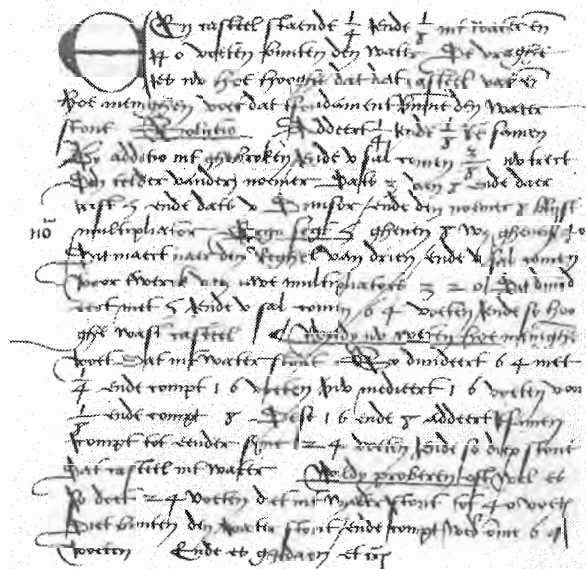 Een casteel staende 1/4 ende 1/8 int water en
40 voeten buuten den water De vraghe
es nu hoe hooghe dat dat casteel was en
hoe menighen voet dat tfondament buut den water
stont Solutio Addeert 1/4 ende 1/8 te samen
by additio int ghebroken ende v sal comen 3/8 nu trect
den telder vanden noemer Dats 3 van 8 ende daer
rest 5 ende dats v Divisor ende den noemer 8 blijft
multipliator Regu segt 5 gheven 8 wat gheven 40
Dat maect naer den Reghel van drien ende v sal comen
voor twerck van uwe multipliatore 320 Dit divid
eert met 5 ende v sal comen 64 voeten ende so hoo
ghe was tcasteel Wondy nu weten hoe menighe
voet dat int water stont So divideert 64 met
1/4 ende compt 16 voeten Nu medieert 16 voeten van
1/8 ende compt 8 Dese 16 ende 8 addeert tsamen
compt tot eender syne 24 voeten ende so diep stont
dat casteel int water Woldy proberen oft wel es
so doet 24 voeten diet int water stont tot 40 voeten
Diet buuten den water stont ende compt weder omme 64
voeten Ende es ghedaen